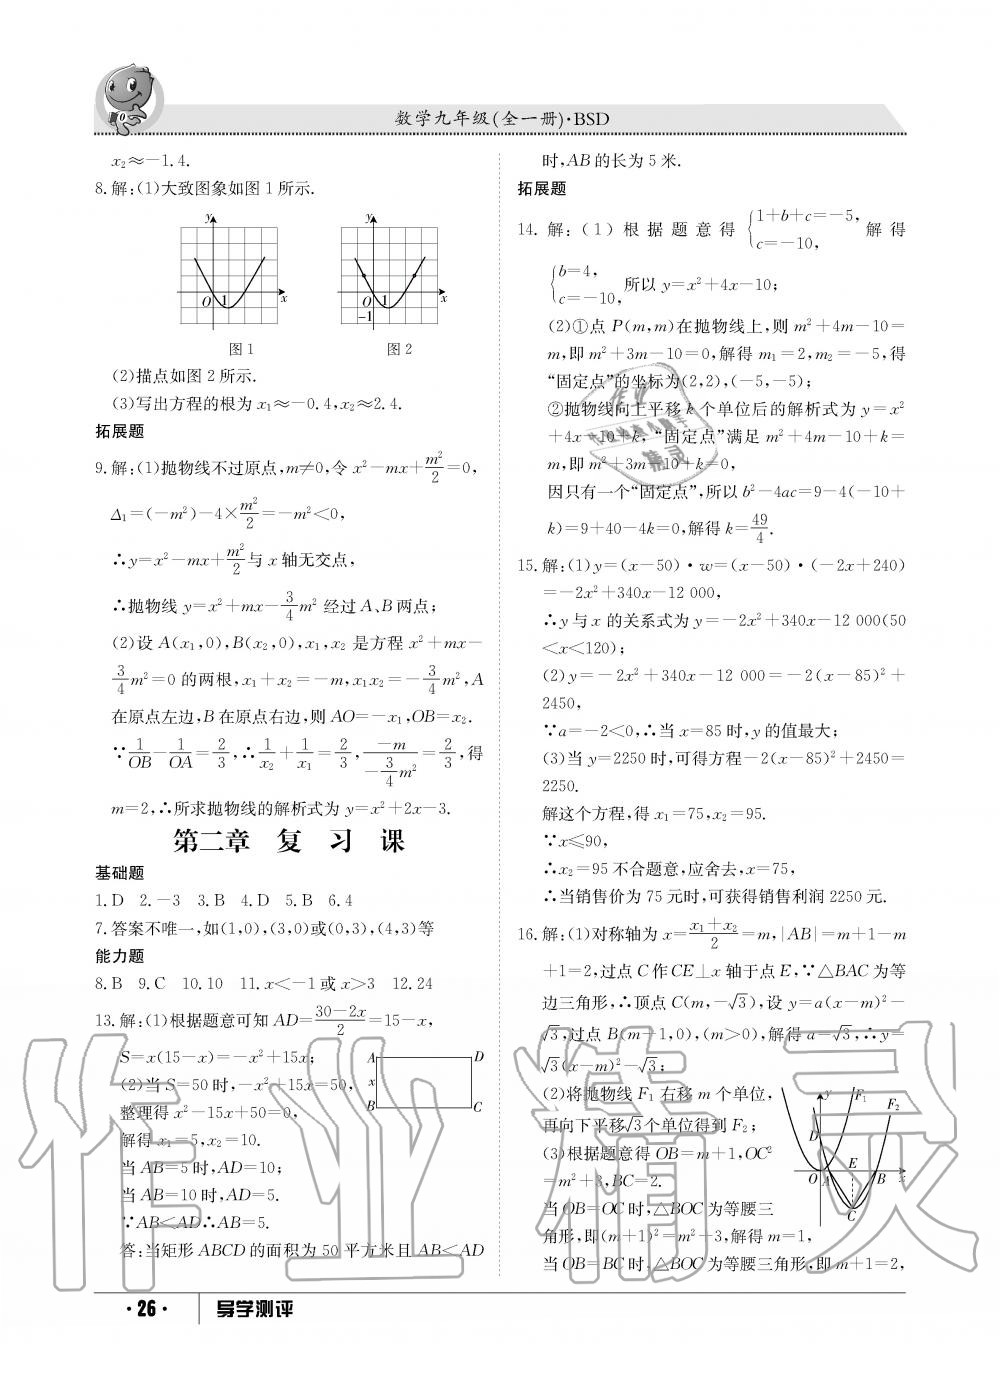 数学九年级(全一册)·BSD
x₂≈-1.4.
8.解:(1)大致图象如图1所示.
y
O 1 x
图1
y
O 1 x
-1
图2
(2)描点如图2所示.
(3)写出方程的根为x₁≈-0.4,x₂≈2.4.
拓展题
9.解:(1)抛物线不过原点,m≠0,令x²-mx+m²/2=0,
Δ₁=(-m²)-4×m²/2=-m²<0,
∴y=x²-mx+m²/2与x轴无交点,
∴抛物线y=x²+mx-3/4m²经过A、B两点;
(2)设A(x₁,0),B(x₂,0),x₁,x₂是方程x²+mx-
3/4m²=0的两根,x₁+x₂=-m,x₁x₂=-3/4m²,A
在原点左边,B在原点右边,则AO=-x₁,OB=x₂.
∵1/OB-1/OA=2/3,∴1/x₂+1/x₁=2/3,-m/(-3/4m²)=2/3,得
m=2,∴所求抛物线的解析式为y=x²+2x-3.
第二章 复习课
基础题
1.D 2.-3 3.B 4.D 5.B 6.4
7.答案不唯一,如(1,0),(3,0)或(0,3),(4,3)等
能力题
8.B 9.C 10.10 11.x<-1或x>3 12.24
13.解:(1)根据题意可知AD=(30-2x)/2=15-x,
S=x(15-x)=-x²+15x;
(2)当S=50时,-x²+15x=50,
整理得x²-15x+50=0,
解得x₁=5,x₂=10.
当AB=5时,AD=10;
当AB=10时,AD=5.
∵AB<AD∴AB=5.
答:当矩形ABCD的面积为50平方米且AB<AD
A D
x
B C
时,AB的长为5米.
拓展题
14.解:(1)根据题意得{1+b+c=-5, c=-10,解得
{b=4, c=-10,所以y=x²+4x-10;
(2)①点P(m,m)在抛物线上,则m²+4m-10=
m,即m²+3m-10=0,解得m₁=2,m₂=-5,得
“固定点”的坐标为(2,2),(-5,-5);
②抛物线向上平移k个单位后的解析式为y=x²
+4x-10+k,“固定点”满足m²+4m-10+k=
m,即m²+3m-10+k=0,
因只有一个“固定点”,所以b²-4ac=9-4(-10+
k)=9+40-4k=0,解得k=49/4.
15.解:(1)y=(x-50)·w=(x-50)·(-2x+240)
=-2x²+340x-12 000,
∴y与x的关系式为y=-2x²+340x-12 000(50
<x<120);
(2)y=-2x²+340x-12 000=-2(x-85)²+
2450,
∵a=-2<0,∴当x=85时,y的值最大;
(3)当y=2250时,可得方程-2(x-85)²+2450=
2250.
解这个方程,得x₁=75,x₂=95.
∵x≤90,
∴x₂=95不合题意,应舍去,x=75,
∴当销售价为75元时,可获得销售利润2250元.
16.解:(1)对称轴为x=(x₁+x₂)/2=m,|AB|=m+1-m
+1=2,过点C作CE⊥x轴于点E,∵△BAC为等
边三角形,∴顶点C(m,-√3),设y=a(x-m)²-
√3,过点B(m+1,0),(m>0),解得a=√3,∴y=
√3(x-m)²-√3;
(2)将抛物线F₁右移m个单位,
再向下平移√3个单位得到F₂;
(3)根据题意得OB=m+1,OC²
=m²+3,BC=2.
当OB=OC时,△BOC为等腰三
角形,即(m+1)²=m²+3,解得m=1,
当OB=BC时,△BOC为等腰三角形,即m+1=2,
y F₁ F₂
D
O A E B x
C
·26· 导学测评
作业精灵